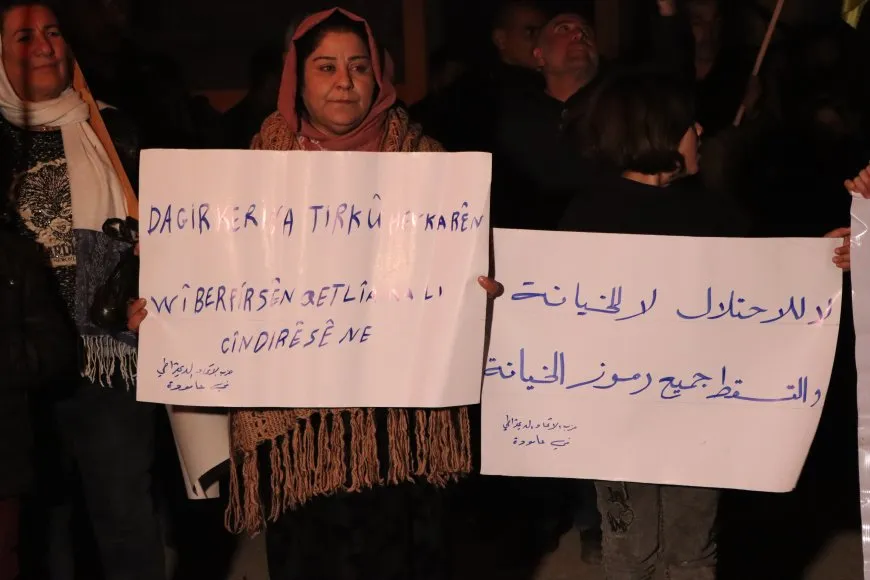 DAGIR KERIYA TIRKÛ HEVKARÊN
WÎ BERPIRSÊN LI
CÎNDIRÊSÊ NE
حزب الاتحاد الديمقراطي
في عامودة
لا للاحتلال لا للخيانة
والتسقط جميع رموز الخيانة
حزب الاتحاد الديمقراطي
في عامودة